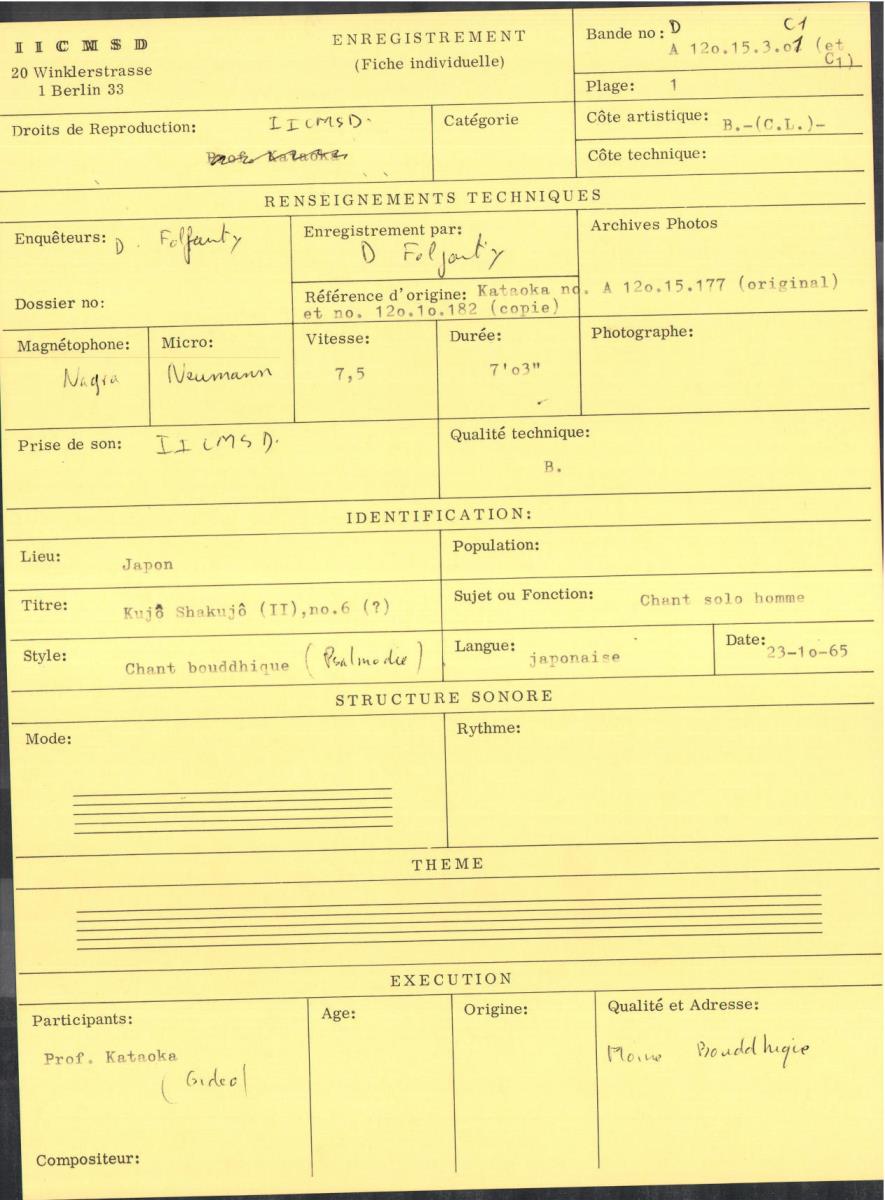 IICMSD
20 Winklerstrasse
1 Berlin 33
ENREGISTREMENT
(Fiche individuelle)
Bande no: D C1
A 12o.15.3.o1 (et
C1)
Plage: 1
Droits de Reproduction: IICMSD.
Prof. Kataoka
Catégorie
Côte artistique: B.-(C.L.)-
Côte technique:
RENSEIGNEMENTS TECHNIQUES
Enquêteurs: D.
Enregistrement par:
D
Archives Photos
Dossier no:
Référence d'origine: Kataoka no. A 12o.15.177 (original)
et no. 12o.1o.182 (copie)
Magnétophone:
Nagra
Micro:
Neumann
Vitesse:
7,5
Durée:
7'o3"
Photographe:
Prise de son: IICMSD.
Qualité technique:
B.
IDENTIFICATION:
Lieu: Japon
Population:
Titre: Kujô Shakujô (II),no.6 (?)
Sujet ou Fonction: Chant solo homme
Style: Chant bouddhique (Psalmodie)
Langue: japonaise
Date: 23-1o-65
STRUCTURE SONORE
Mode:
Rythme:
THEME
EXECUTION
Participants:
Prof. Kataoka
Age:
Origine:
Qualité et Adresse:
Moine Bouddhique
Compositeur: